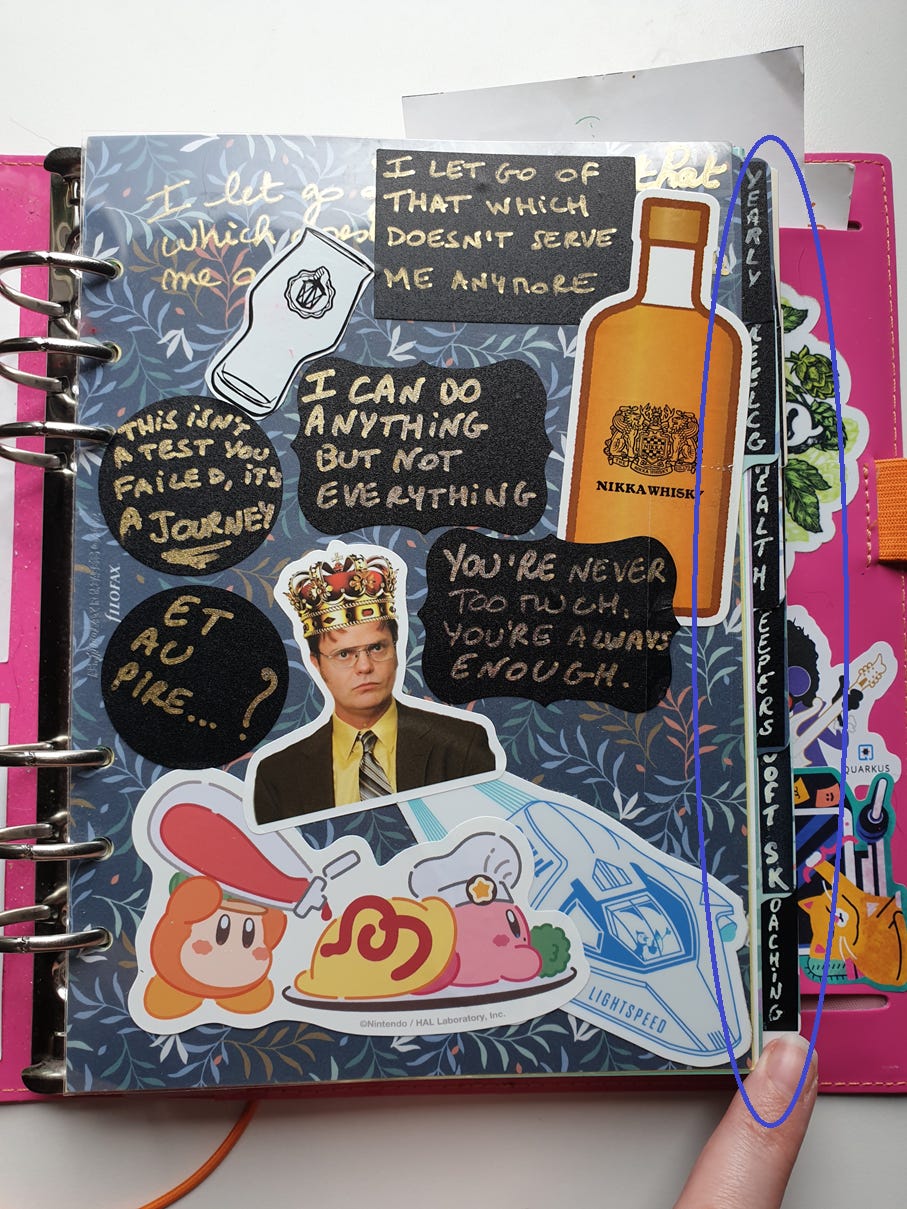 I let go
that
which does
me a
I LET GO OF
THAT WHICH
DOESN'T SERVE
ME ANYMORE
I CAN DO
ANYTHING
BUT NOT
EVERYTHING
NIKKA WHISKY
THIS ISN'T
A TEST YOU
FAILED, IT'S
A JOURNEY
YOU'RE NEVER
TOO MUCH,
YOU'RE ALWAYS
ENOUGH.
ET
AU
PIRE... ?
filofax
LIGHTSPEED
©Nintendo / HAL Laboratory, Inc.
YEARLY
EALTH
EEPERS
OFT SK
OACHING
QUARKUS